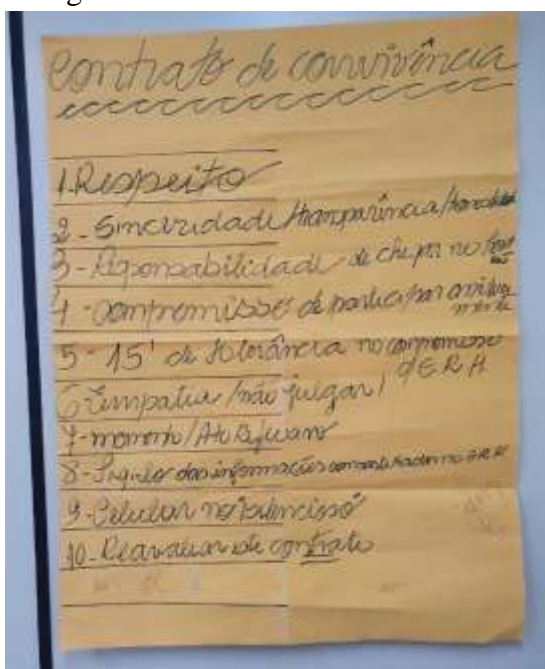 Contrato de convivência
1. Respeito
2 - Sinceridade / transparência /
3 - Responsabilidade de chegar no
4 - compromisso de participar ativa
mente
5 - 15' de tolerância no compromisso
GERH
6 - Empatia / não julgar /
7 - momento /
8 - Sigilo das informações compartilhadas no GERH
9 - Celular no silencioso
10 - Reavaliar de contrato